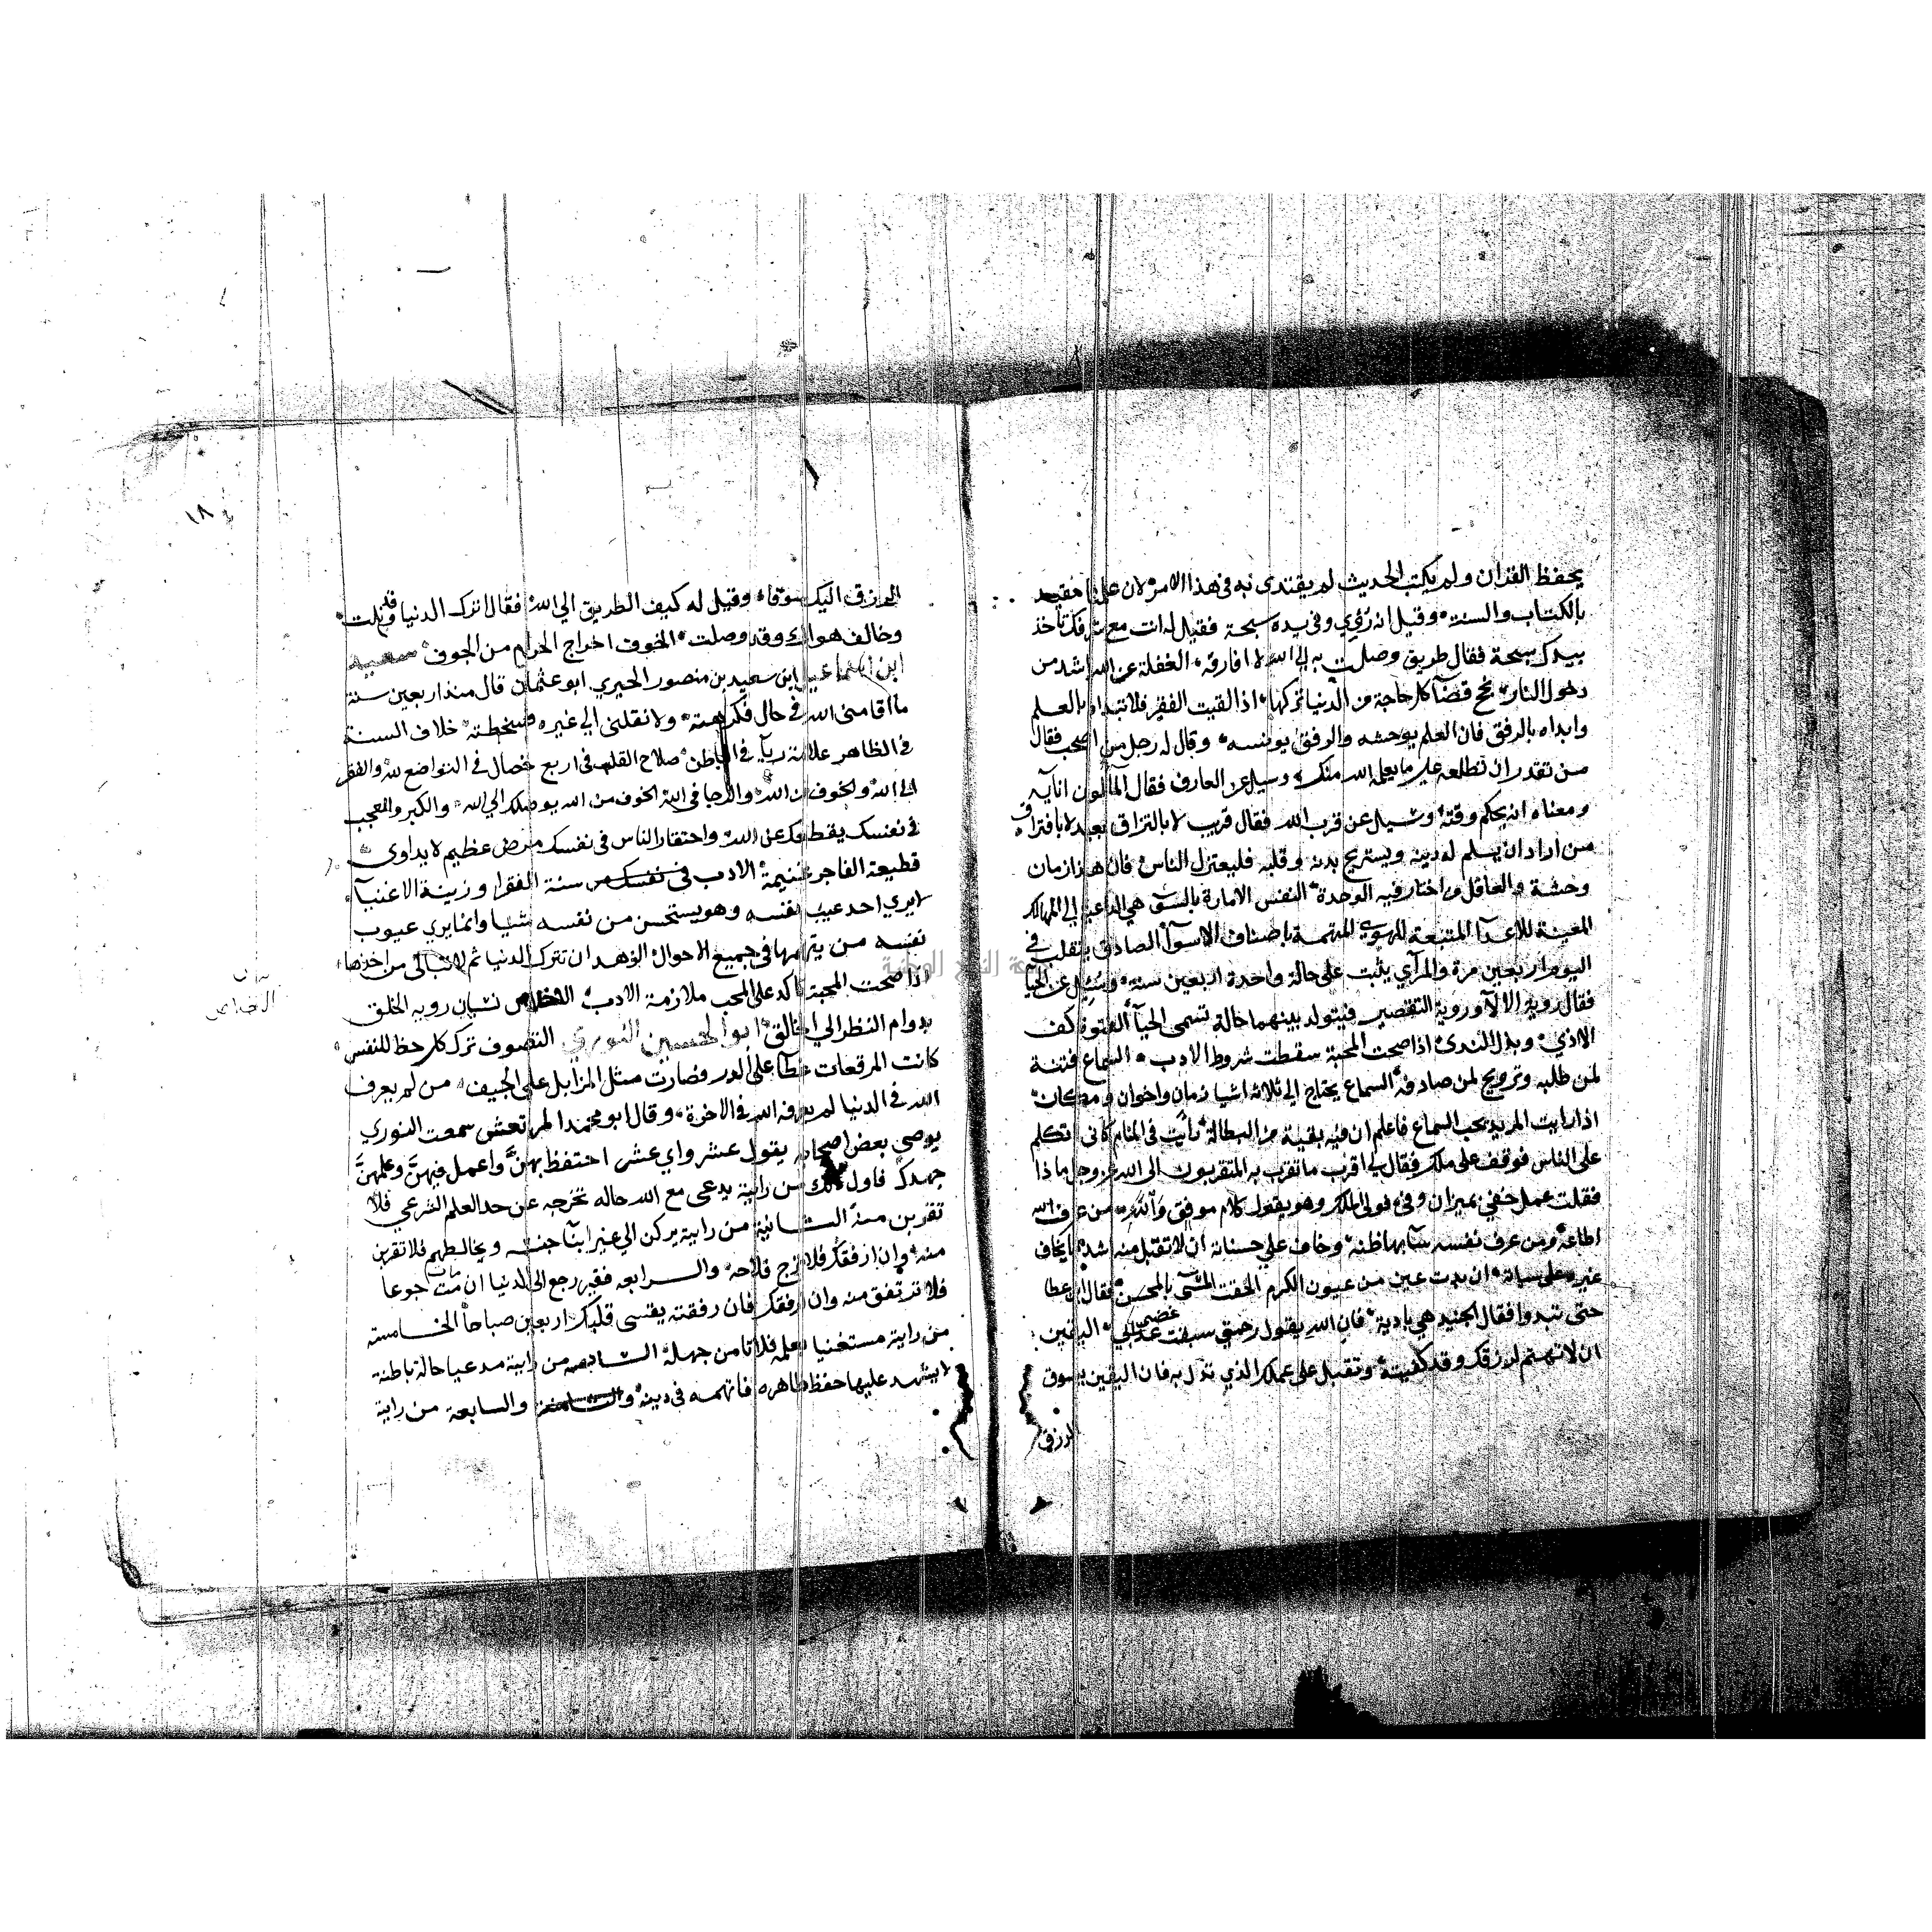 يحفظ القران ولم يكتب الحديث لم يقتدى به في هذا الامر لان علمنا مقيد
بالكتاب والسنة وقيل انه رؤي وفي يده سبحة فقيل له انت مع شرفك تاخذ
بيدك سبحة فقال طريق وصلت به الي الله لا افارقه الغفلة عن الله اشد من
دخول النار نجح قضآ كل حاجة من الدنيا تركها اذا لقيت الفقير فلا تبداه بالعلم
وابداه بالرفق فان العلم يوحشه والرفق يونسه وقال له رجل من اصحب فقال
من تقدر ان تطلعه علي ما يعلمه الله منك وسيل عن العارف فقال الما لون انآيه
ومعناه انه بحكم وقته وسيل عن قرب الله فقال قريب لا بالتزاق بعيد لا بافتراق
من اراد ان يسلم له دينه ويستريح بدنه وقلبه فليعتزل الناس فان هذا زمان
وحشة والعاقل من اختار فيه الوحدة النفس الامارة بالسوء هي الداعية الي المهالك
المعينة للاعدآ المتبعة للهوي المتهمة باصناف الاسوآ الصادق يتقلب في
اليوم اربعين مرة والمرآي يثبت على حالة واحدة اربعين سنة وسيل عن الحيا
فقال روية الالآ وروية التقصير فيتولد بينهما حالة تسمى الحيآ الفتوة كف
الاذي وبذل الندى اذا صحت المحبة سقطت شروط الادب السماع فتنة
لمن طلبه وترويح لمن صادفه السماع يحتاج الي ثلاثة اشيا زمان واخوان ومكان
اذا رايت المريد يحب السماع فاعلم ان فيه بقية من البطالة رايت في المنام كاني اتكلم
على الناس فوقف على ملك فقال لي اقرب ما تقرب به المتقربون الى الله عز وجل ماذا
فقلت عمل خفي بميزان وفي فولى الملك وهو يقول كلام موفق والله من عرف الله
اطاعه ومن عرف نفسه سآ بها ظنه وخاف علي حسناته ان لا تقبل منه اشد ما يخاف
غيره على سياته ان بدت عين من عيون الكرم الحقت المسي بالمحسن فقال ابن عطا
حتى تبدوا فقال الجنيد هي بادية فان الله يقول رحمتي سبقت غضبي اليقين
ان لا تهتم لرزقك وقد كفيته وتقبل على عملك الذي به فان اليقين يسوق
الرزق
١٨
الرزق اليك سوقا وقيل له كيف الطريق الي الله فقال اترك الدنيا وقد نلت
وخالف هواك وقد وصلت الخوف اخراج الحرام من الجوف سعيد
ابن اسماعيل ابن سعيد بن منصور الحيري ابو عثمان قال منذ اربعين سنة
ما اقامني الله في حال فكرهته ولا نقلني الي غيره فسخطته خلاف السنة
في الظاهر علامة ريآ في الباطن صلاح القلب في اربع خصال في التواضع لله والفقر
الي الله ولخوف من الله والرجا في الله الخوف من الله يوصلك الي الله والكبر والعجب
في نفسك يقطعك عن الله واحتقار الناس في نفسك مرض عظيم لا يداوى
قطيعة الفاجر غنيمة الادب سنة الفقرا وزينة الاغنيآ
لا يري احد عيب نفسه وهو يستحسن من نفسه شيا وانما يري عيوب
نفسه من يتهمها في جميع الاحوال الزهد ان تترك الدنيا ثم لا تبالى من اخذها
اذا صحت المحبة تاكد على المحب ملازمة الادب الاخلاص نسيان روية الخلق
بدوام النظر الي الخالق ابو الحسين النوري التصوف ترك كل حظ للنفس
كانت المرقعات غطآ على الدر فصارت مثل المزابل على الجيف من لم يعرف
الله في الدنيا لم يعرفه الله في الاخرة وقال ابو محمد المرتعش سمعت النوري
يوصي بعض اصحابه يقول عشر واي عشر احتفظ بهن واعمل فيهن وعلمهن
جهدك فاول ذلك من رايته يدعى مع الله حاله تخرجه عن حد العلم الشرعي فلا
تقربن منه الثانية من رايته يركن الي غير ابنآ جنسه ويخالطهم فلا تقربن
منه وان ارفقك فلا ترج فلاحه والرابعه فقير رجع الى الدنيا ان مات جوعا
فلا ترتفق منه وان ارفقك فان رفقته يقسى قلبك اربعين صباحا الخامسة
من رايته مستغنيا بعلمه فلا تامن جهله السادسة من رايته مدعيا حالة باطنة
لا يشهد عليها حفظ ظاهره فاتهمه في دينه والسابعة من رايته